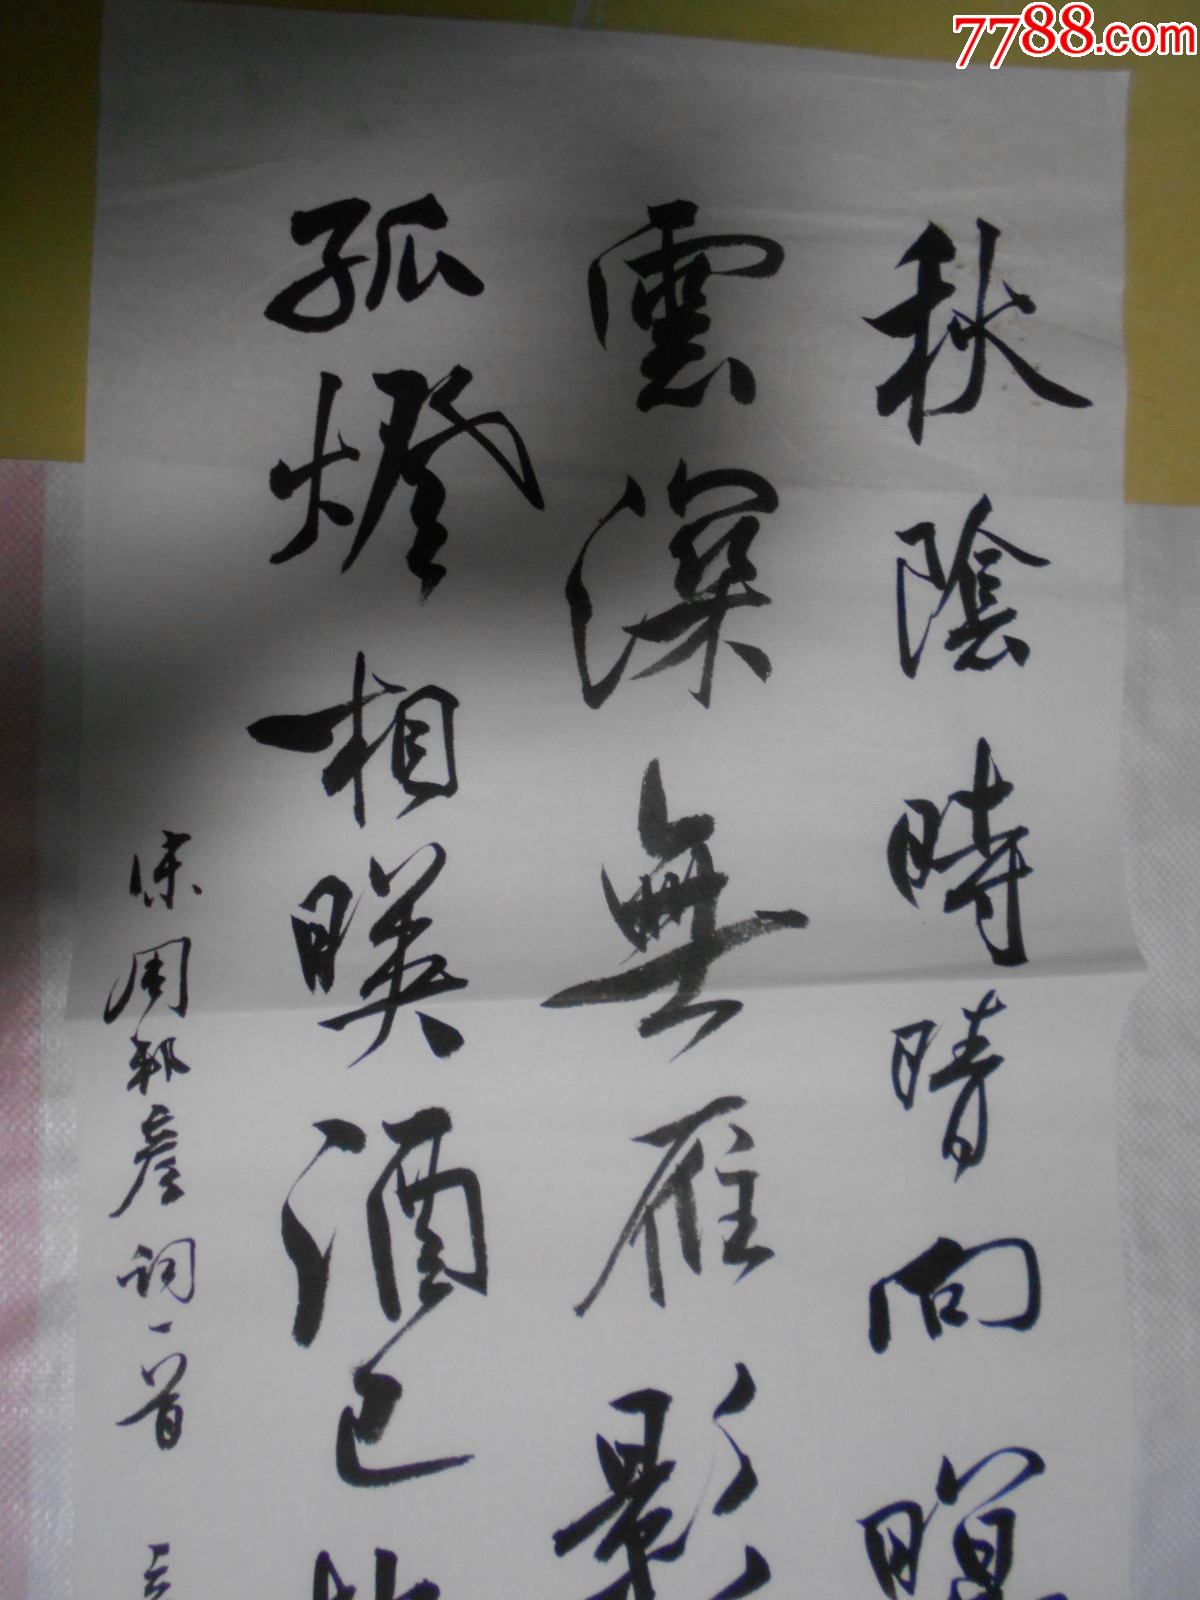 7788.com
秋陰時晴向暝
雲深無雁影
孤燈相暎酒已
宋周邦彥詞一首